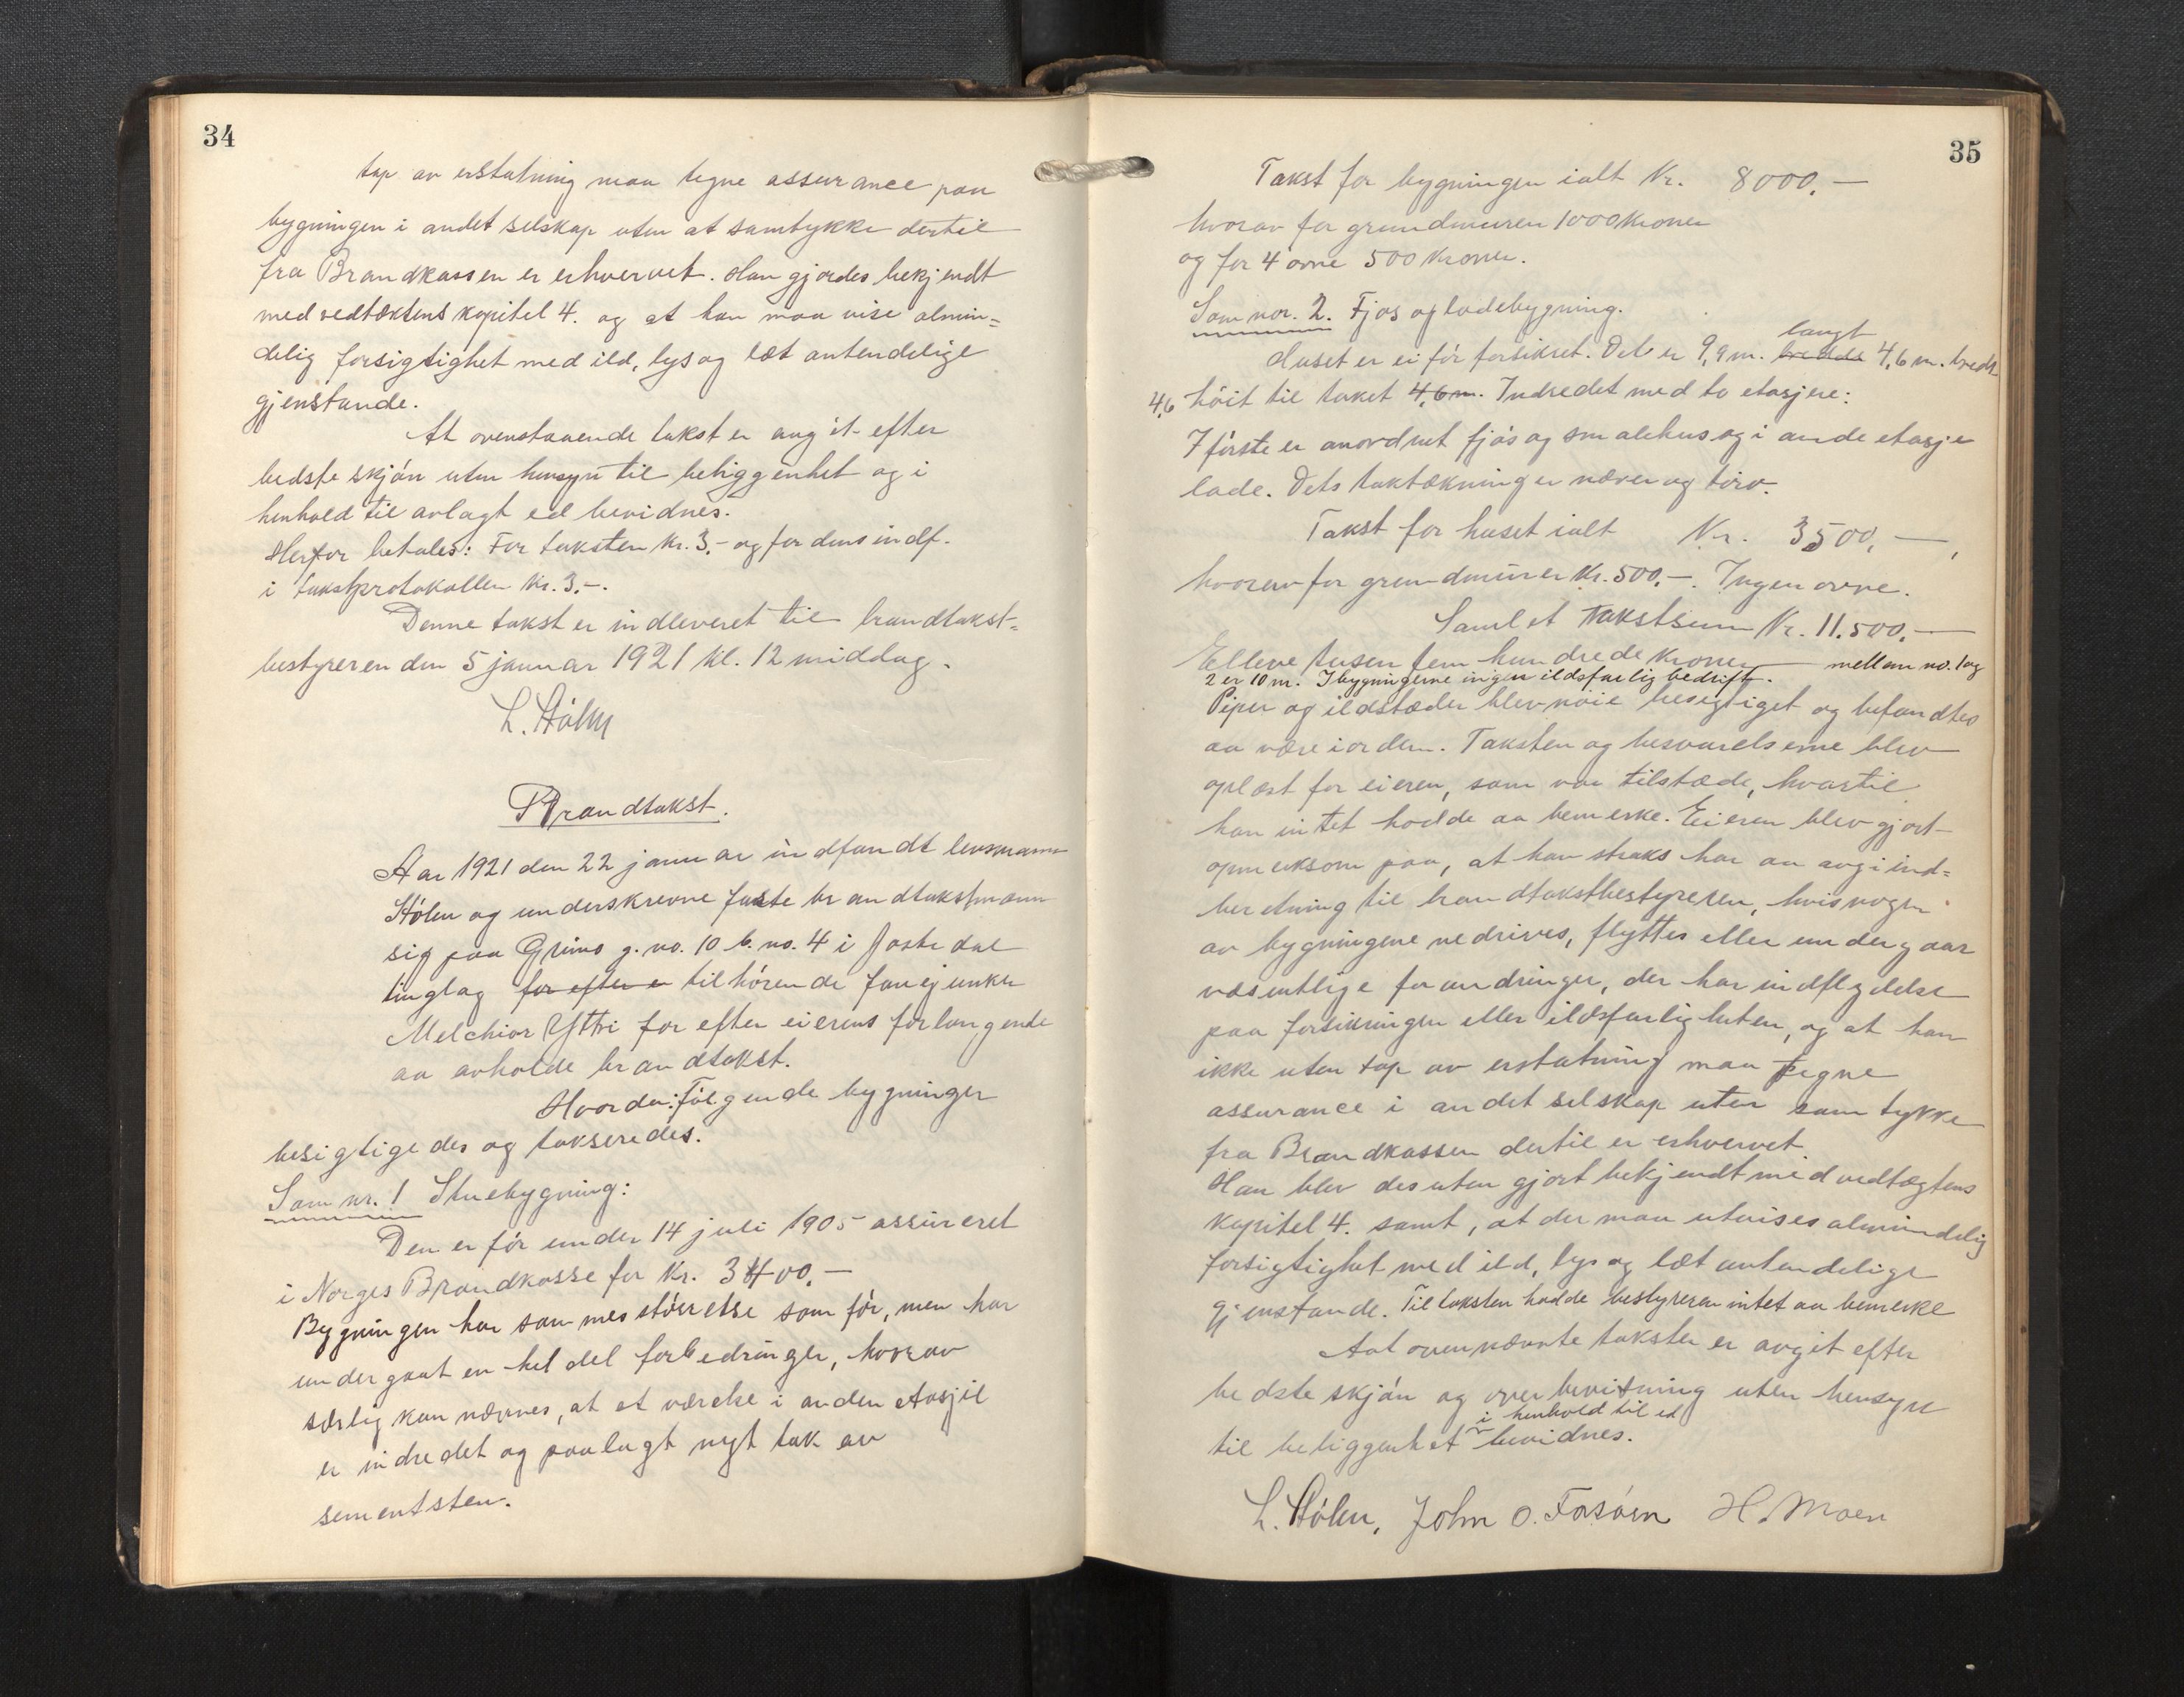 34
tap av erstatning maa tegne assurance paa
bygningen i andet selskap uten at samtykke dertil
fra Brandkassen er erhvervet. Han gjordes bekjendt
med vedtæktens kapitel 4. og at han maa vise almin=
delig forsigtighet med ild, lys og læt antendelige
gjenstande.
At ovenstaaende takst er avgit efter
bedste skjön uten hensyn til beliggenhet og i
henhold til avlagt ed bevidnes.
Herfor betales: For taksten kr. 3.- og for dens indf.
i takstprotokollen kr. 3.-.
Denne takst er indleveret til brandtakst=
bestyreren den 5 januar 1921 kl. 12 middag.
L. Hölm
Brandtakst.
Aar 1921 den 22 januar indfandt lensmann
Hölm og underskrevne faste brandtakstmænn
sig paa Grims g. no. 10 b. no. 4 i Jostedal
tinglag for efter e tilhörende fanejunker
Melchior Yttri for efter eierens forlangende
aa avholde brandtakst.
Hvorda: Fölgende bygninger
besigtigedes og takseredes.
Som nr. 1 Stuebygning:
Den er för under 14 juli 1905 assureret
i Norges Brandkasse for Kr. 3400.—
Bygningen har sammes störrelse som för, men har
undergaat en hel del forbedringer, hvorav
særlig kan nævnes, at et værelse i anden etasje
er indredet og paalagt nyt tak av
sementsten.
35
Takst for bygningen ialt Kr. 8000.—
hvorav for grundmuren 1000 kroner
og for 4 ovne 500 kroner.
Som nor. 2. Fjos og ladebygning.
langt
Huset er ei för forsikret. Det er 9,9 m. bredde 4,6 m. bredt
4,6 höit til taket 4,6 m. Indredet med to etasjer:
I förste er anordnet fjös og smalehus og i ande etasje
lade. Dets taktækning er næver og törv.
Takst for huset ialt Kr. 3500.—,
hvorav for grundmurer Kr. 500.—. Ingen ovne.
Samlet Takstsum Kr. 11.500.—
Elleve tusen fem hundrede kroner — mellem no. 1 og
2 er 10 m. I bygningerne ingen ildsfarlig bedrift.
Piper og ildstæder blev nöie besigtiget og befandtes
aa være i orden. Taksten og besvarelserne blev
oplæst for eieren, som var tilstæde, hvartil
han intet hadde aa bemerke. Eieren blev gjort
opmerksom paa, at han straks har aa avgi ind=
beretning til brandtakstbestyreren, hvis nogen
av bygningene nedrives, flyttes eller undergaar
væsentlige forandringer, der har indflydelse
paa forsikringen eller ildsfarligheten, og at han
ikke uten tap av erstatning maa tegne
assurance i andet selskap uten samtykke
fra Brandkassen dertil er erhvervet.
Han blev desuten gjort bekjendt med vedtægtens
kapitel 4. samt, at der maa utvises almindelig
forsigtighet med ild, lys og læt antendelige
gjenstande. Til taksten hadde bestyreren intet aa bemerke
At ovennævnte takster er avgit efter
bedste skjön og overbevisning uten hensyn
i henhold til ed
til beliggenhet bevidnes.
L. Hölm, John O. Fosöen H. Moen